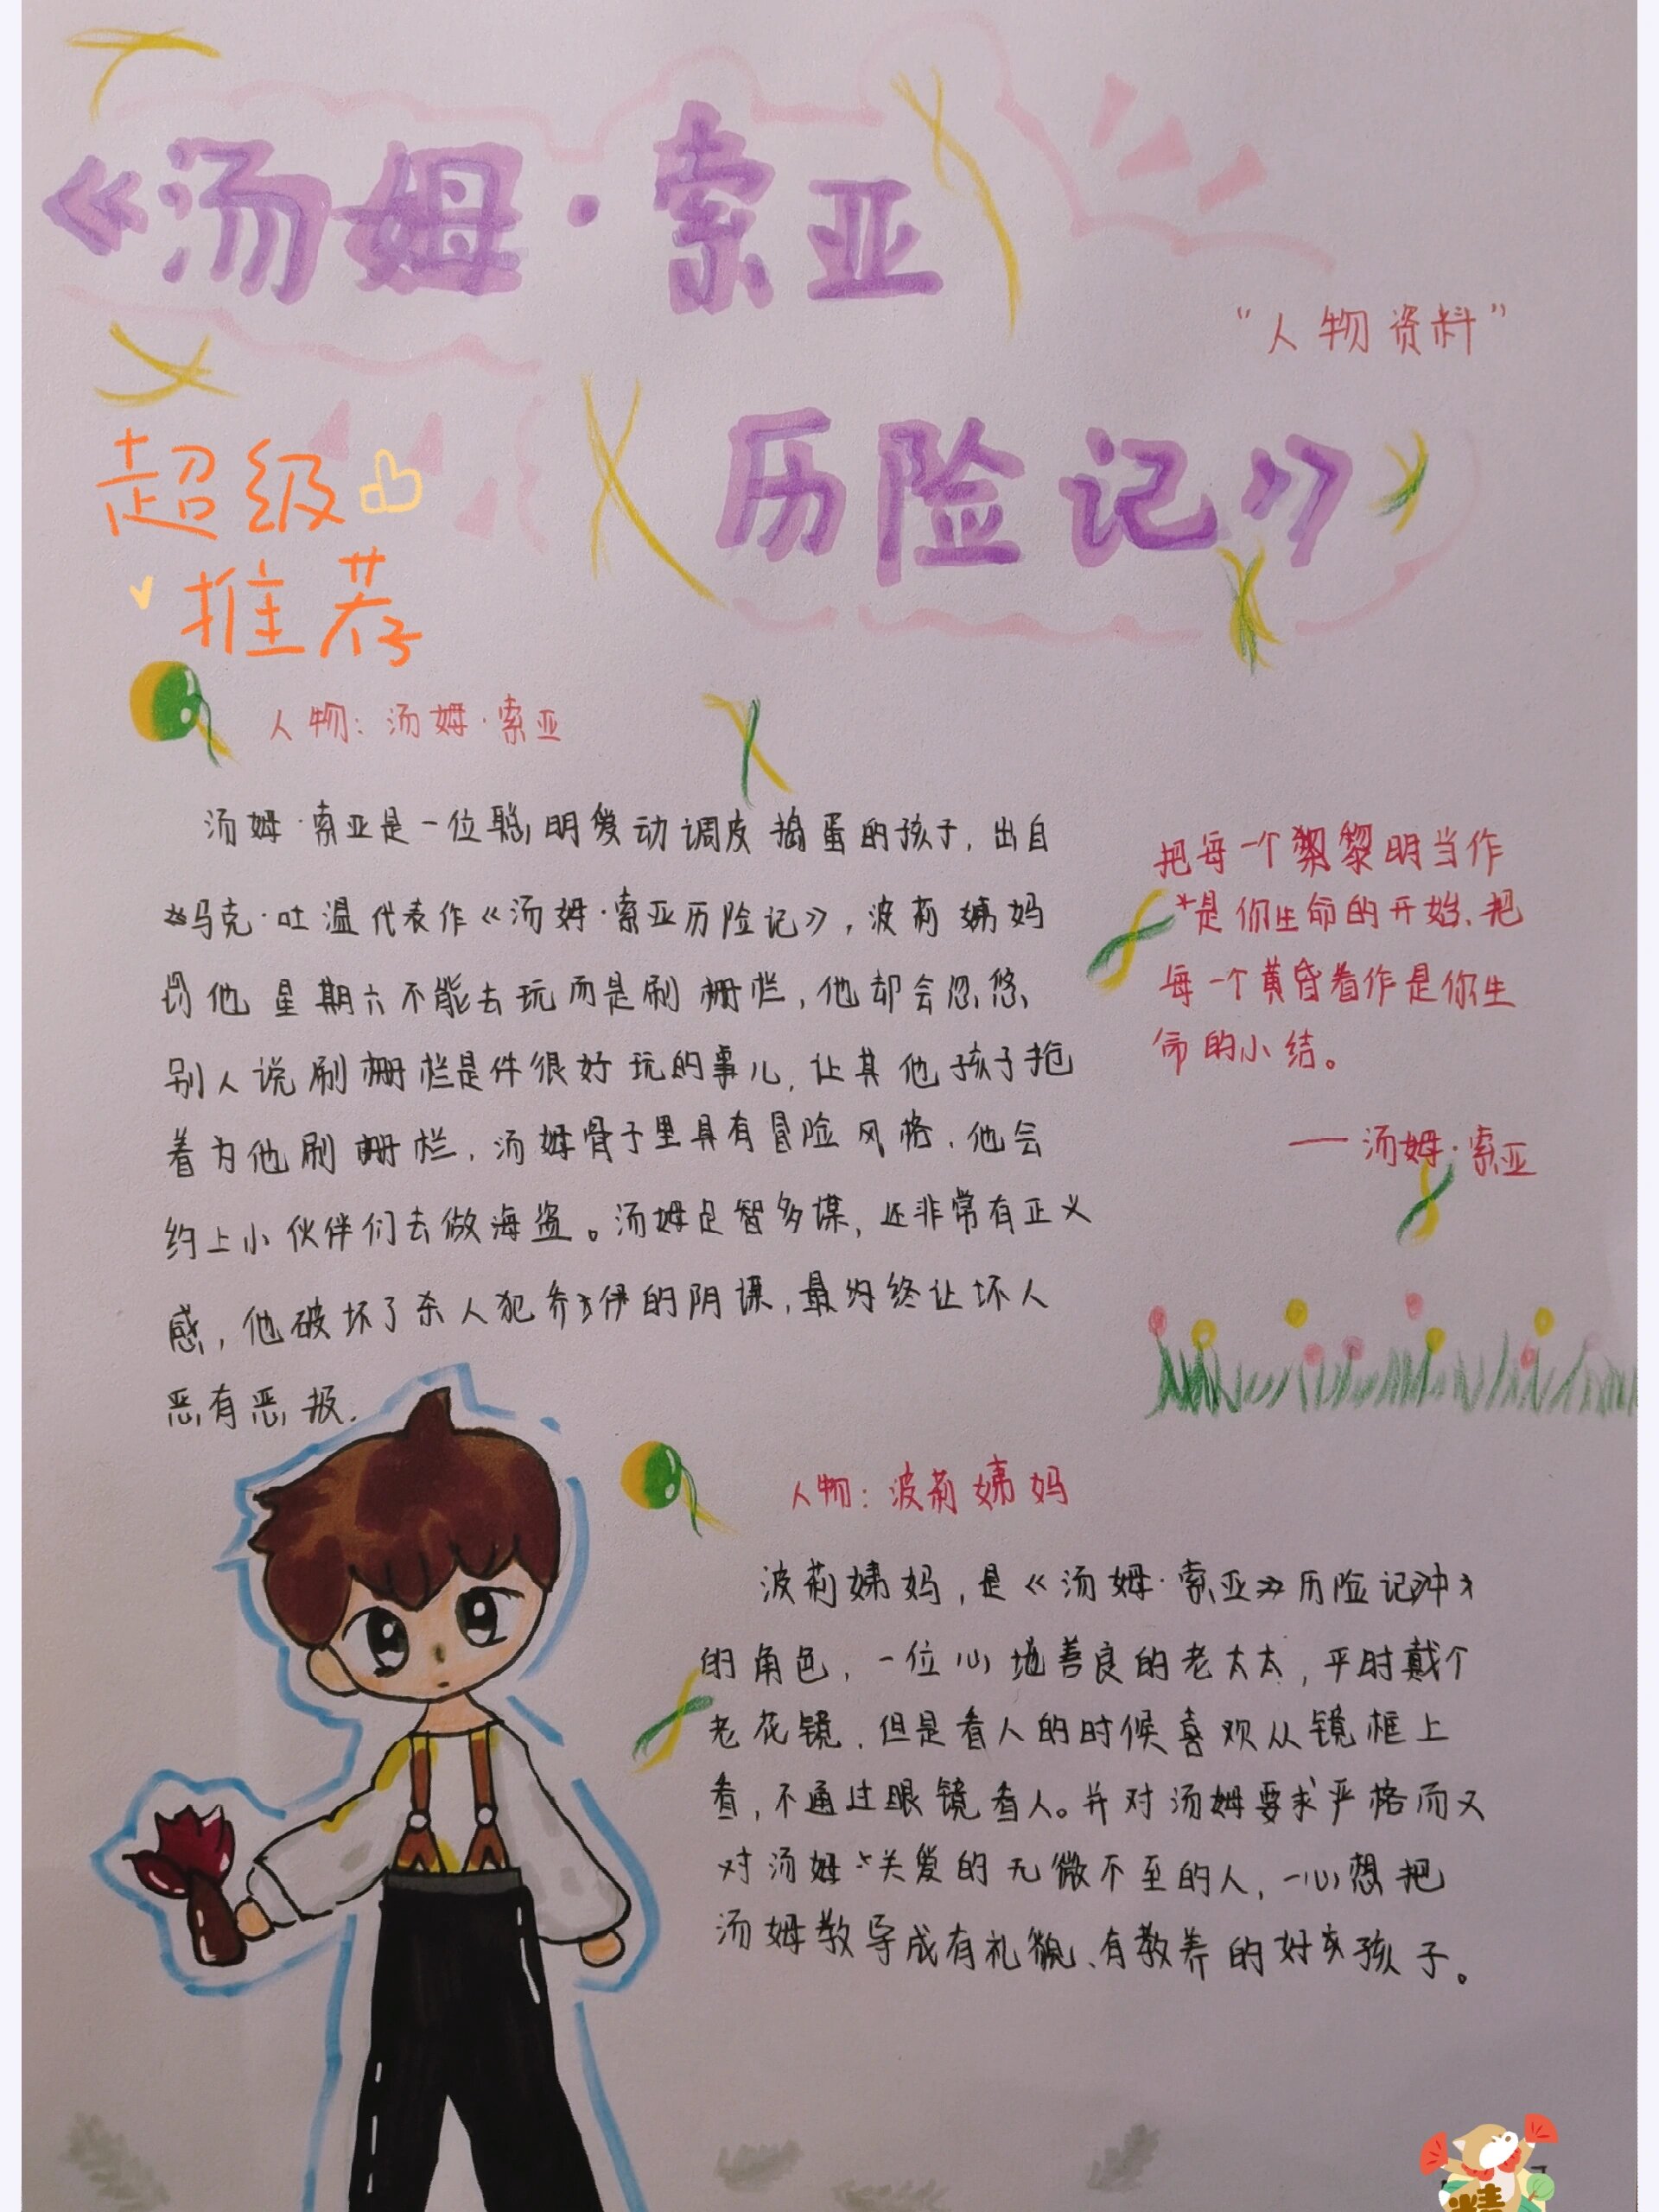 《汤姆·索亚
"人物资料"
历险记》
超级
推荐
人物：汤姆·索亚
汤姆·索亚是一位聪明爱动调皮捣蛋的孩子，出自
马克·吐温代表作《汤姆·索亚历险记》，波莉姨妈
罚他星期六不能去玩而是刷栅栏，他却会忽悠
别人说刷栅栏是件很好玩的事儿，让其他孩子抢
着为他刷栅栏，汤姆骨子里具有冒险风格，他会
约上小伙伴们去做海盗。汤姆足智多谋，还非常有正义
感，他破坏了杀人犯乔伊的阴谋，最终让坏人
恶有恶报．
把每一个黎明当作
是你生命的开始、把
每一个黄昏看作是你生
命的小结。
——汤姆·索亚
人物：波莉姨妈
波莉姨妈，是《汤姆·索亚》历险记中
的角色，一位心地善良的老太太，平时戴个
老花镜，但是看人的时候喜欢从镜框上
看，不通过眼镜看人。并对汤姆要求严格而又
对汤姆关爱的无微不至的人，一心想把
汤姆教导成有礼貌、有教养的好孩子。
精